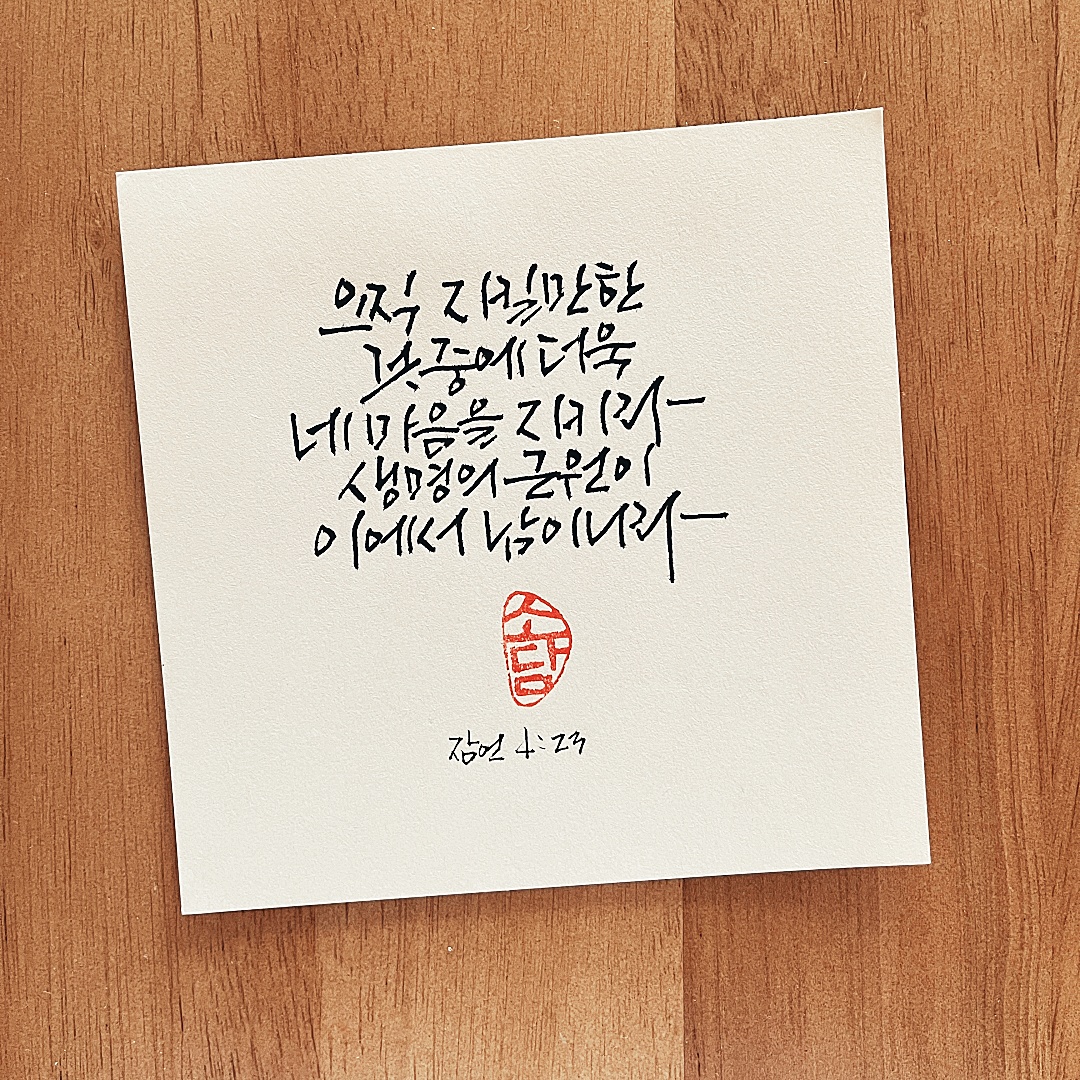 오직 지킬만한
것 중에 더욱
네 마음을 지키라
생명의 근원이
이에서 남이니라
소담
잠언 4:23